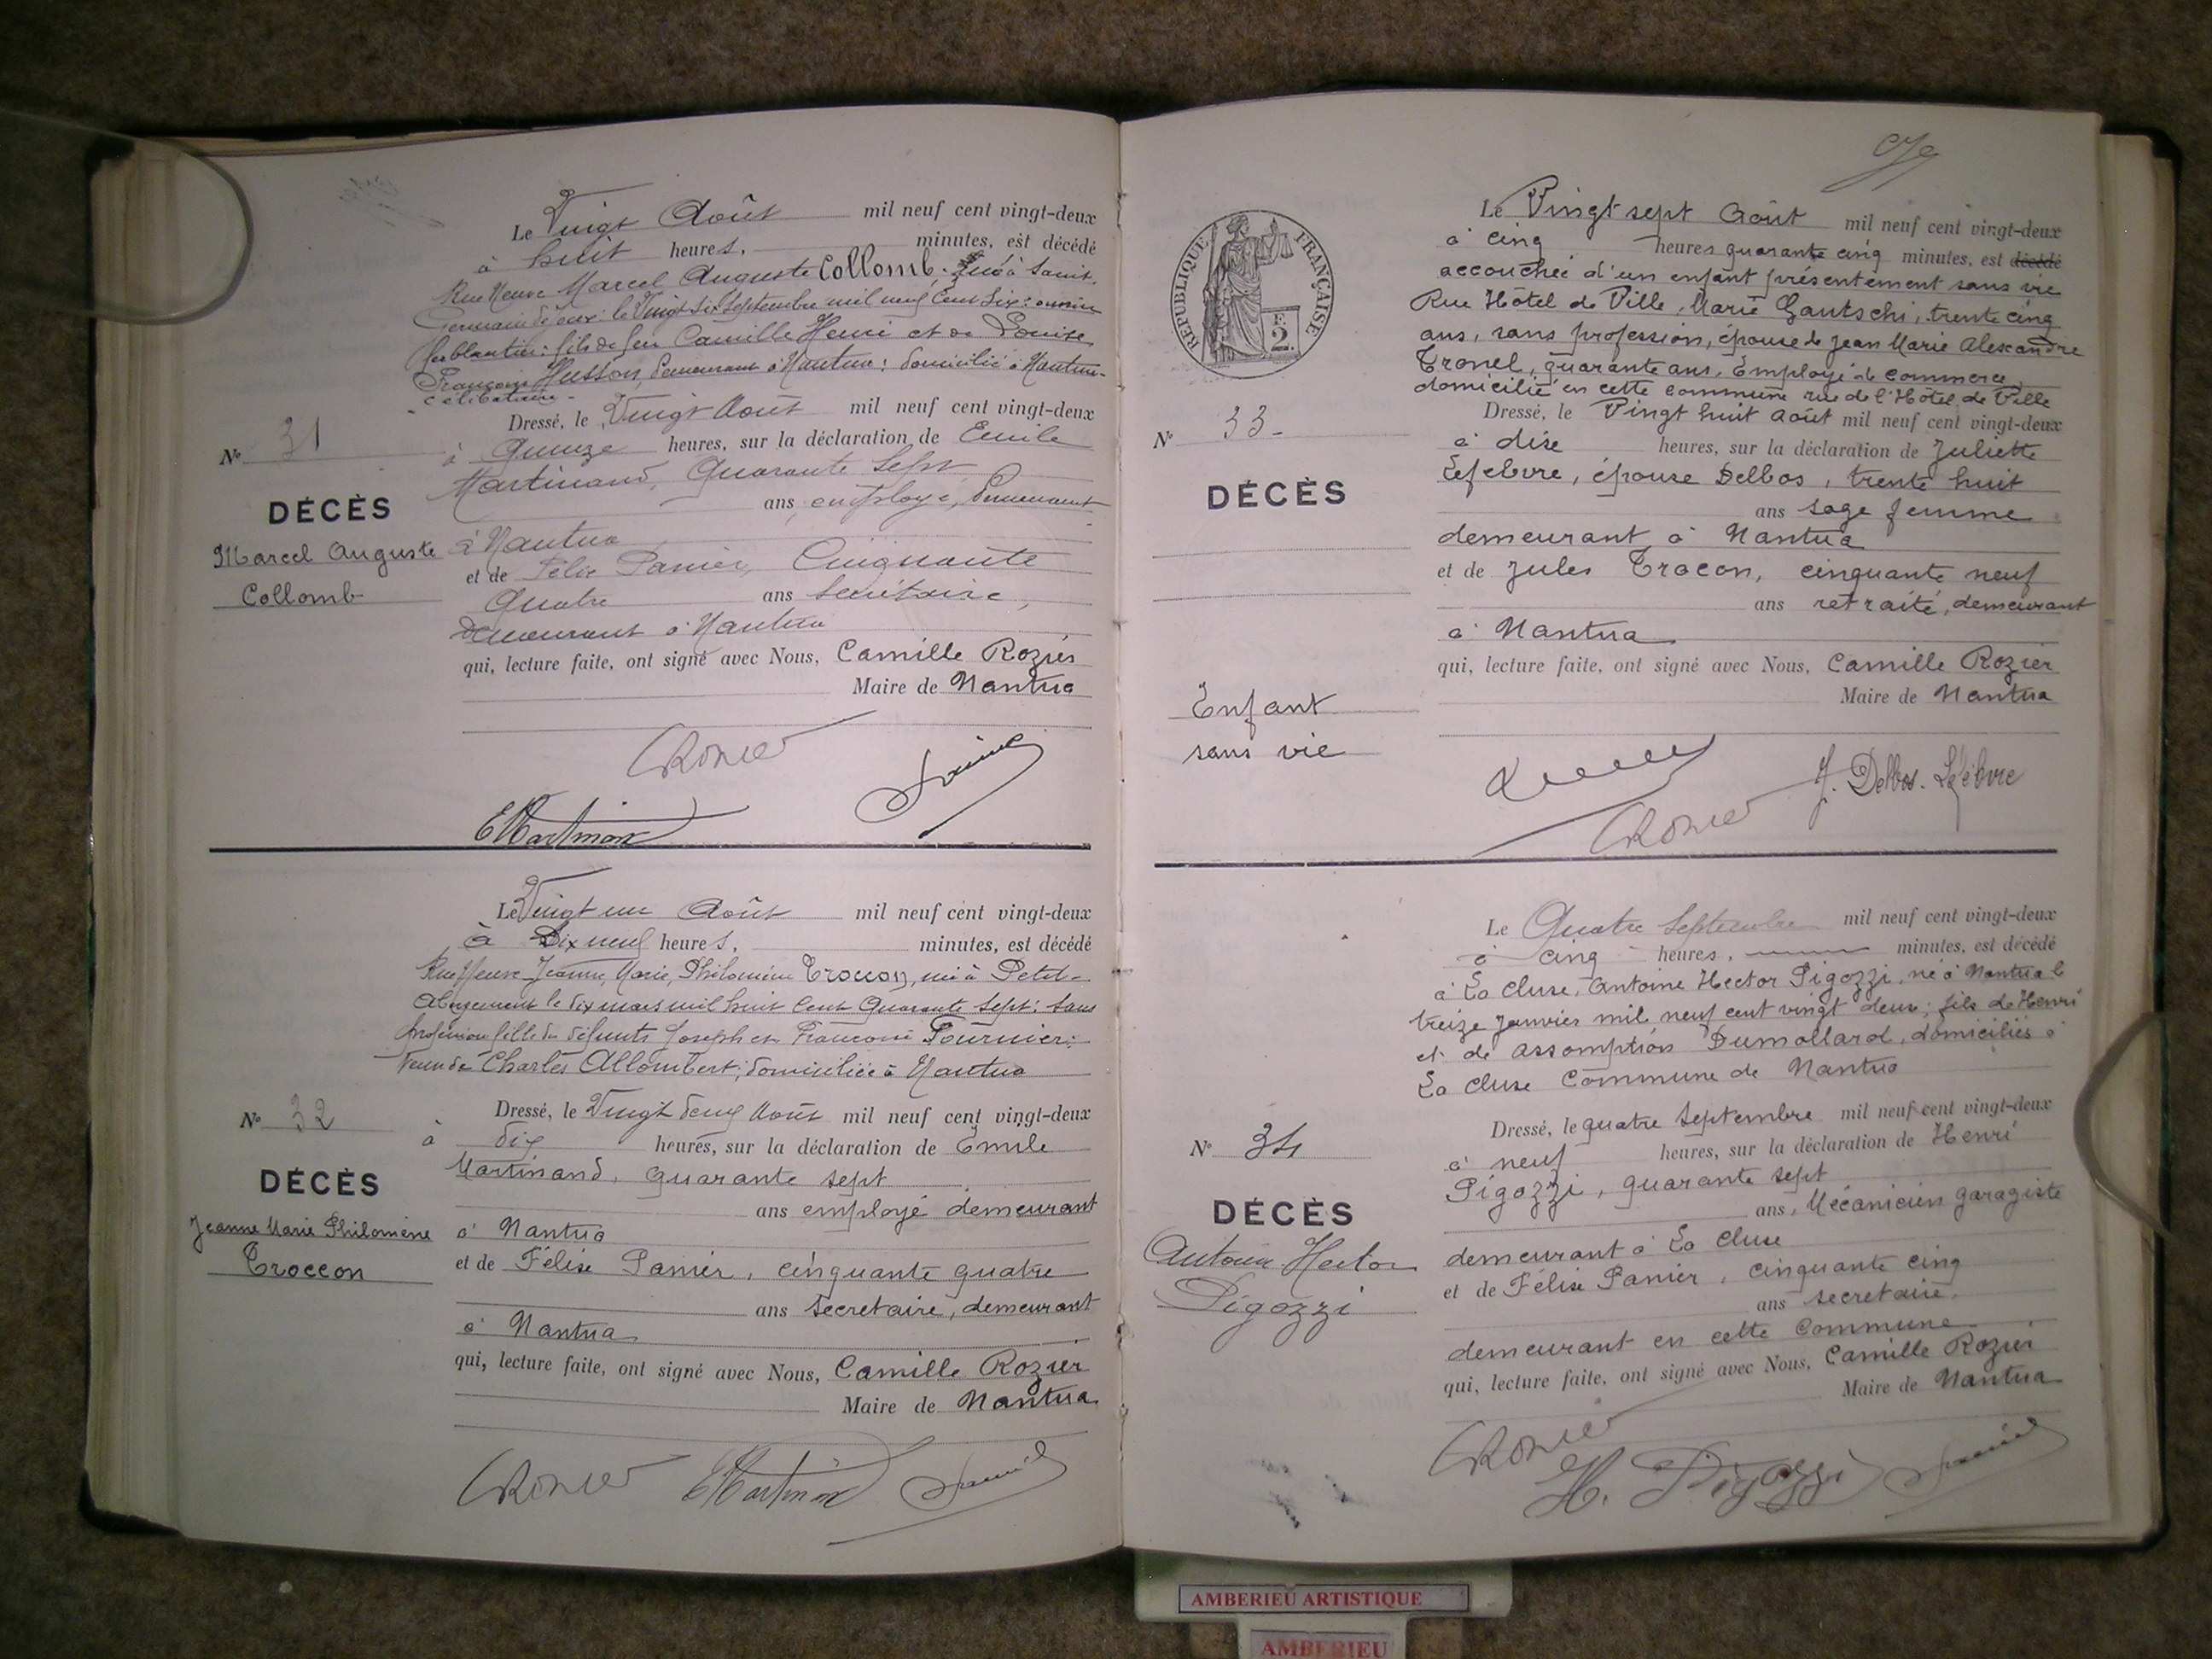 Le Vingt Août mil neuf cent vingt-deux
à huit heures, minutes, est décédé
Rue Neuve Marcel Auguste Collomb. né à Saint.
Germain de Joux: le Vingt six Septembre mil neuf Cent Six: ouvrier
ferblantier: fils de feu Camille Henri et de Louise
Françoise Husson, demeurant à Nantua: domicilié à Nantua-
célibataire-
Dressé, le Vingt Août mil neuf cent vingt-deux
à Quinze heures, sur la déclaration de Emile
Martinand, Quarante Sept
ans employé, demeurant
à Nantua
et de Félix Panier, Cinquante
Quatre ans Secrétaire,
demeurant à Nantua
qui, lecture faite, ont signé avec Nous, Camille Rozier
Maire de Nantua
N° 31
DÉCÈS
Marcel Auguste
Collomb
CRozier
EMartinand
Le Vingt un Août mil neuf cent vingt-deux
à Dix neuf heures, minutes, est décédé
Rue Neuve Jeanne, Marie, Philomène Troccon, née à Petit-
Abergement le dix mars mil huit Cent Quarante Sept: sans
profession fille de défunts Joseph et Françoise Fournier:
Veuve de Charles Allombert; domiciliée à Nantua
Dressé, le Vingt deux Août mil neuf cent vingt-deux
à dix heures, sur la déclaration de Emile
Martinand, quarante sept
ans employé demeurant
à Nantua
et de Félix Panier, cinquante quatre
ans secretaire, demeurant
à Nantua
qui, lecture faite, ont signé avec Nous, Camille Rozier
Maire de Nantua
N° 32
DÉCÈS
Jeanne Marie Philomène
Troccon
CRozier EMartinand Panier
RÉPUBLIQUE FRANÇAISE
F.
2.
Le Vingt sept Août mil neuf cent vingt-deux
à cinq heures quarante cinq minutes, est décédé
accouchée d'un enfant présentement sans vie
Rue Hôtel de Ville, Marie Gautschi, trente cinq
ans, sans profession, épouse de Jean Marie Alexandre
Tronel, quarante ans, Employé de commerce,
domicilié en cette commune rue de l'Hôtel de Ville
Dressé, le Vingt huit Août mil neuf cent vingt-deux
à dix heures, sur la déclaration de Juliette
Lefebvre, épouse Delbos, trente huit
ans sage femme
demeurant à Nantua
et de Jules Trocon, cinquante neuf
ans retraité, demeurant
à Nantua
qui, lecture faite, ont signé avec Nous, Camille Rozier
Maire de Nantua
N° 33-
DÉCÈS
Enfant
sans vie
CRozier J. Delbos. Lefèbvre
Le Quatre Septembre mil neuf cent vingt-deux
à cinq heures, minutes, est décédé
à La Cluse, Antoine Hector Pigozzi, né à Nantua le
treize Janvier mil neuf cent vingt deux; fils de Henri
et de Assomption Dumollard, domiciliés à
La Cluse Commune de Nantua
Dressé, le quatre Septembre mil neuf cent vingt-deux
à neuf heures, sur la déclaration de Henri
Pigozzi, quarante sept
ans, Mécanicien garagiste
demeurant à La Cluse
et de Félix Panier, cinquante cinq
ans secretaire,
demeurant en cette Commune
qui, lecture faite, ont signé avec Nous, Camille Rozier
Maire de Nantua
N° 34
DÉCÈS
Antoine Hector
Pigozzi
CRozier
H. Pigozzi Panier
AMBERIEU ARTISTIQUE
AMBERIEU